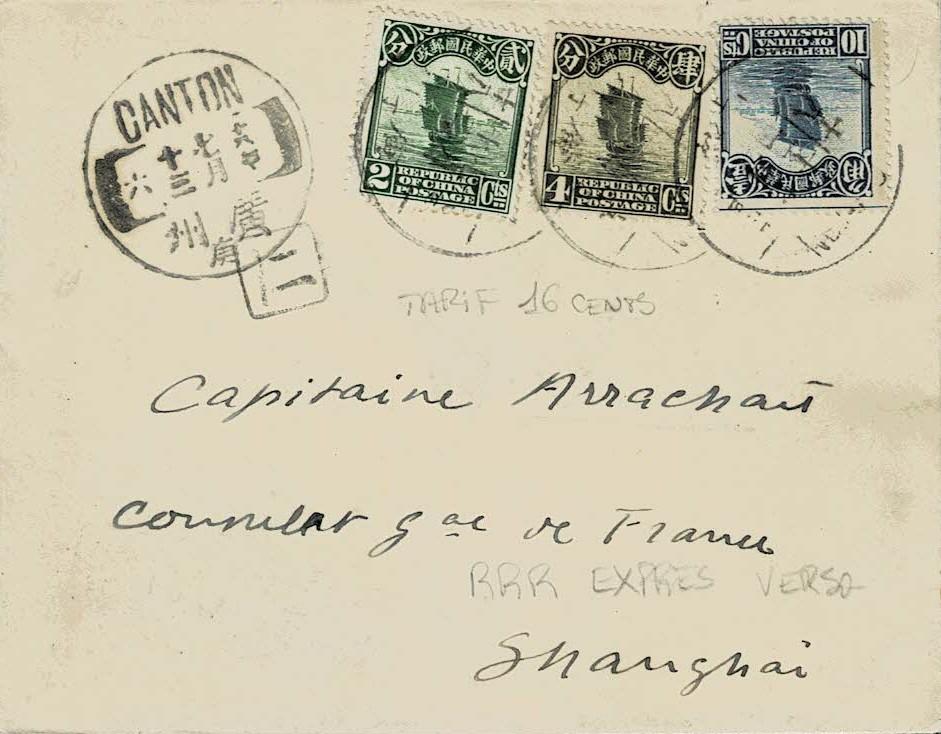 CANTON
十七六
六十三月中
廣州
貳 中華民國郵政 分
2 REPUBLIC OF CHINA POSTAGE Cts
肆 中華民國郵政 分
4 REPUBLIC OF CHINA POSTAGE Cts
10 REPUBLIC OF CHINA POSTAGE Cts
TARIF 16 CENTS
Capitaine Arrachart
Consulat Gal de France
RRR EXPRES VERSO
Shanghai